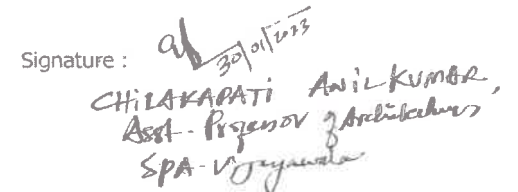 Signature : 30/01/2023
CHILAKAPATI ANIL KUMAR,
Asst. Professor of Architecture,
SPA-Vijayawada